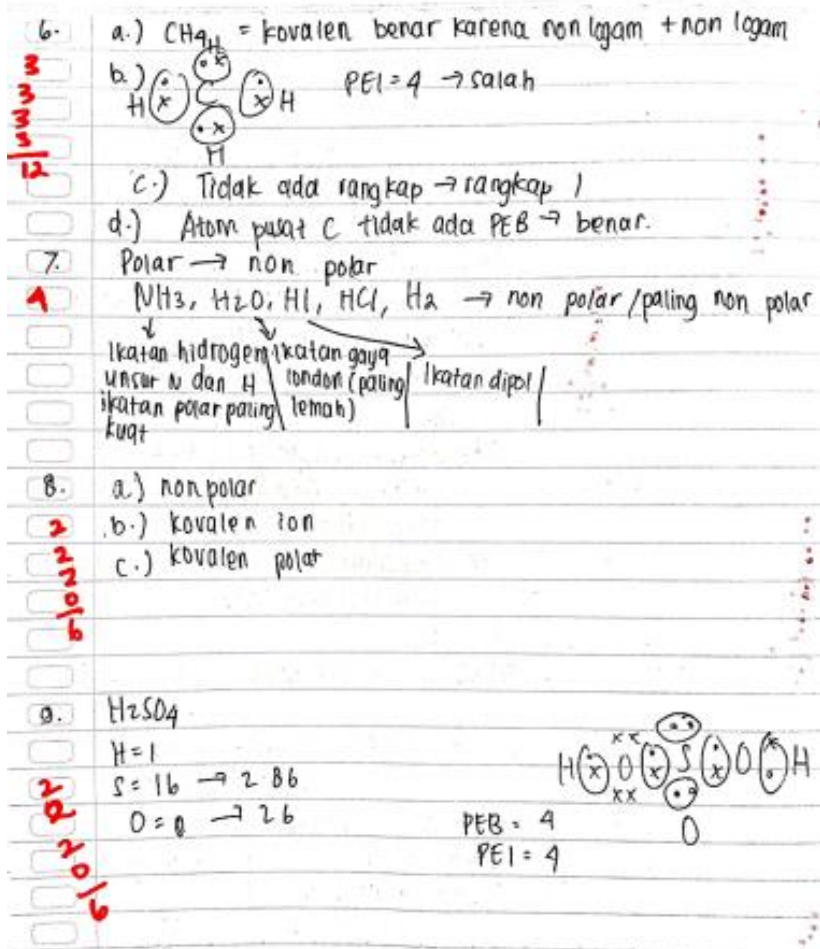 6. a.) CH4 = kovalen benar karena non logam + non logam
3
3
3
3
12
b.) H C H H H PEI = 4 → salah
c.) Tidak ada rangkap → rangkap 1
d.) Atom pusat C tidak ada PEB → benar.
7. Polar → non polar
NH3, H2O, HI, HCl, H2 → non polar/paling non polar
Ikatan hidrogen unsur N dan H ikatan polar paling kuat
Ikatan gaya london (paling lemah)
Ikatan dipol
8. a.) non polar
2
b.) kovalen ion
2
c.) kovalen polar
2
0
6
9. H2SO4
H = 1
S = 16 → 2 86
2
O = 8 → 2 6
2
0
6
H O S O H
O
PEB = 4
PEI = 4